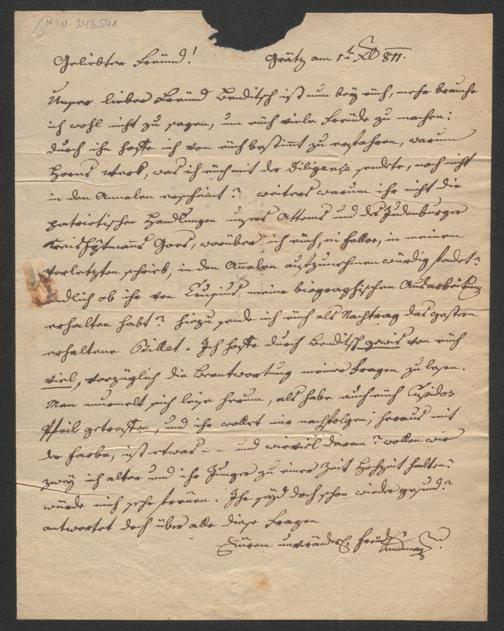 H.I.N. 243.541
Geliebter Freund! Grätz am 1t. Xb 811.
Unser lieber Freund Benditsch ist nun bey euch, mehr brauche
ich wohl nicht zu sagen, um euch viele Freude zu machen:
durch ihn hoffe ich von euch bestimmt zu erfahren, warum
Horns Werk, was ich euch mit der Diligence sendete, noch nicht
in den Annalen erscheint? weiters warum ihr nicht die
patriotischen Handlungen unsers Attems und des Judenburger
Kreishptmanns Goes, worüber ich euch, in meinem
vorletzten schrieb, in den Annalen aufzunehmen würdig findet?
endlich ob ihr von meine biographischen Ausarbeitung
erhalten habt? hiezu sende ich euch als Nachtrag das gestern
erhaltene Billet. Ich hoffe durch Benditsch gewis von euch
viel, vorzüglich die Beantwortung meiner Fragen zu lesen.
Man murmelt sich leise herum, als habe auch euch Cupidos
Pfeil getroffen, und ihr wollet mir nachfolgen; heraus mit
der Farbe, ist etwas - - und wieviel daran? wollen wir
zwey ich alter und ihr Junger zu einer Zeit Hochzeit halten?
würde mich sehr freuen. Ihr seyd doch schon wieder gesund?
antwortet doch über alle diese Fragen
Eurem unveränderl. Freund